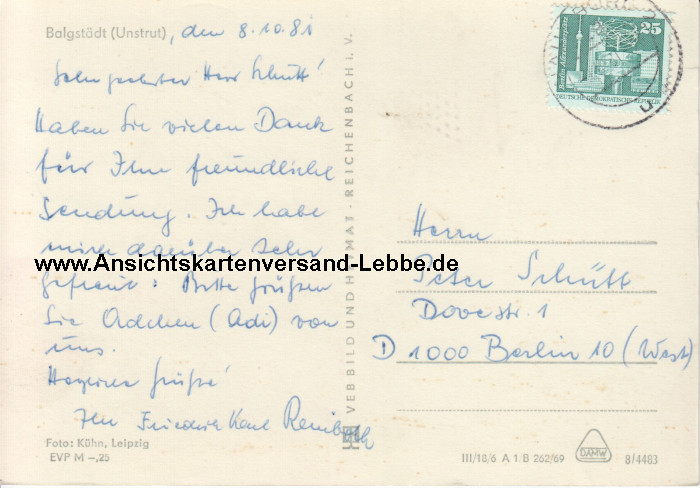 Balgstädt (Unstrut), den 8.10.81
Sehr geehrter Herr Schütt!
Haben Sie vielen Dank
für Ihre freundliche
Sendung. Ich habe
mich darüber sehr
gefreut. Bitte grüßen
Sie Adchen (Adi) von
uns.
Herzliche Grüße!
Ihr Friedrich Karl
Foto: Kühn, Leipzig
EVP M –,25
VEB BILD UND HEIMAT · REICHENBACH i. V.
www.Ansichtskartenversand-Lebbe.de
25
Berlin, Alexanderplatz
DEUTSCHE DEMOKRATISCHE REPUBLIK
Herrn
Peter Schütt
Dovestr. 1
D 1000 Berlin 10 (West)
III/18/6 A 1 B 262/69 DAMW 8/4483